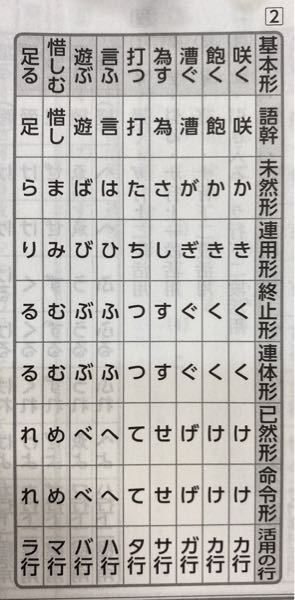 2
基本形 語幹 未然形 連用形 終止形 連体形 已然形 命令形 活用の行
咲く 咲 か き く く け け カ行
飽く 飽 か き く く け け カ行
漕ぐ 漕 が ぎ ぐ ぐ げ げ ガ行
為す 為 さ し す す せ せ サ行
打つ 打 た ち つ つ て て タ行
言ふ 言 は ひ ふ ふ へ へ ハ行
遊ぶ 遊 ば び ぶ ぶ べ べ バ行
惜しむ 惜し ま み む む め め マ行
足る 足 ら り る る れ れ ラ行